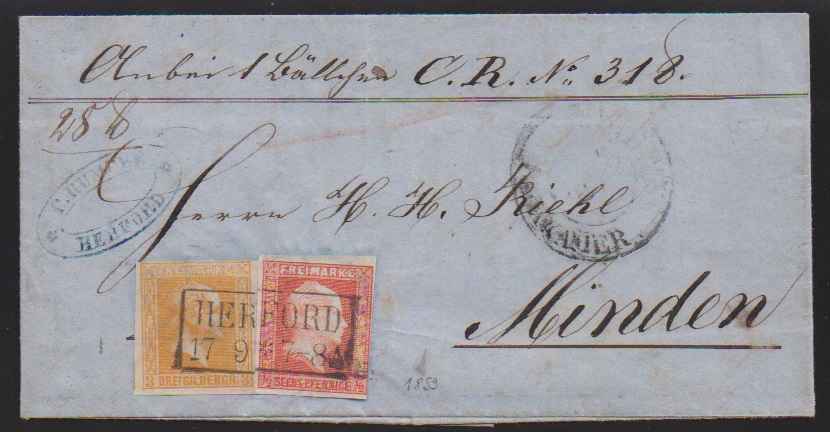 Anbei 1 Bällchen C. R. No. 318.
28 ℔
C. RUMPKE
HERFORD
Herrn H. H. Kiehl
Minden
FREIMARKE
3 DREI SILBERGR. 3
FREIMARKE
½ SECHS PFENNIGE ½
HERFORD
17 9 * 7-8
1859